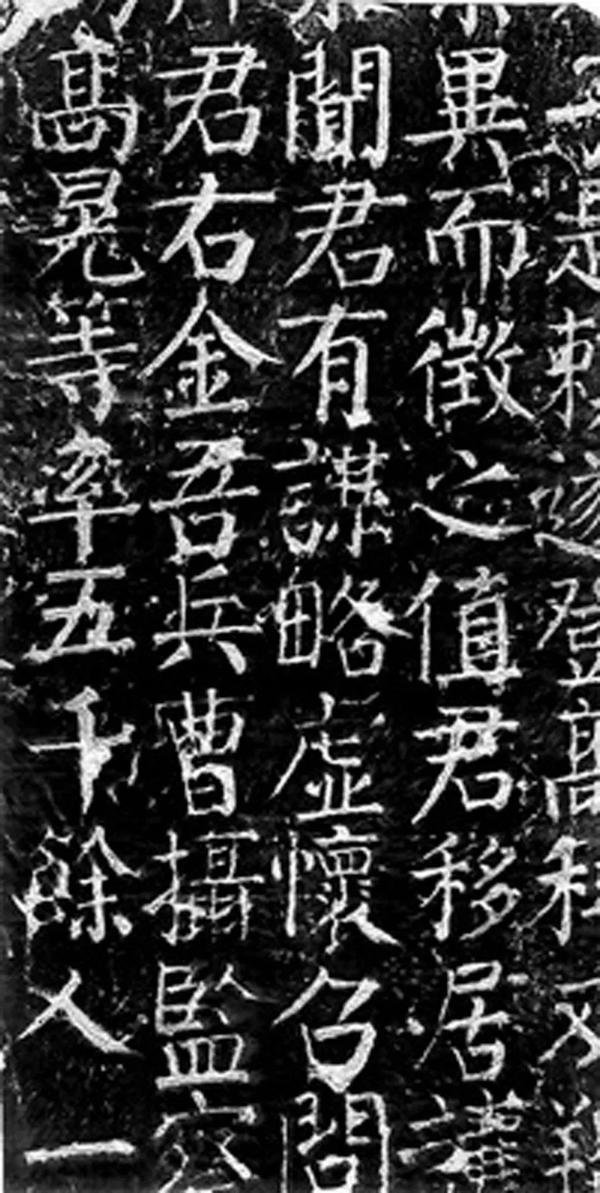 是遂登高科
異而徵之值君移居
聞君有謀略虛懷召問
君右金吾兵曹攝監察
高晃等率五千餘人一